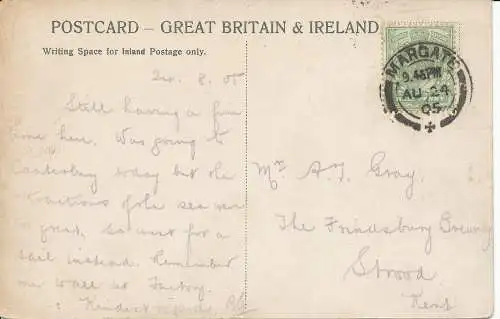 POSTCARD – GREAT BRITAIN & IRELAND
Writing Space for Inland Postage only.
24. 8. 05
Still having a fine
time here. Was going to
Canterbury today but the
attractions of the sea were
so great, so went for a
sail instead. Remember
me to all at Factory.
Kindest regards.
MARGATE
9.45PM
AU 24
05
Mr A. J. Gray.
The Frindsbury Brewery
Strood
Kent